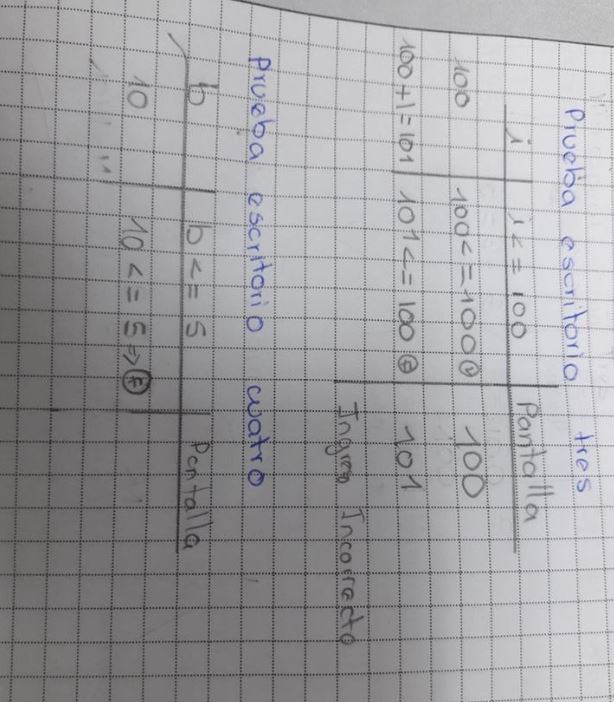 Prueba escritorio tres
i i <= 100 Pantalla
100 100<=100 Ⓥ 100
100+1=101 101<=100 Ⓕ 101
Ingreso Incorrecto
Prueba escritorio cuatro
b b <= 5 Pantalla
10 10 <= 5 => Ⓕ